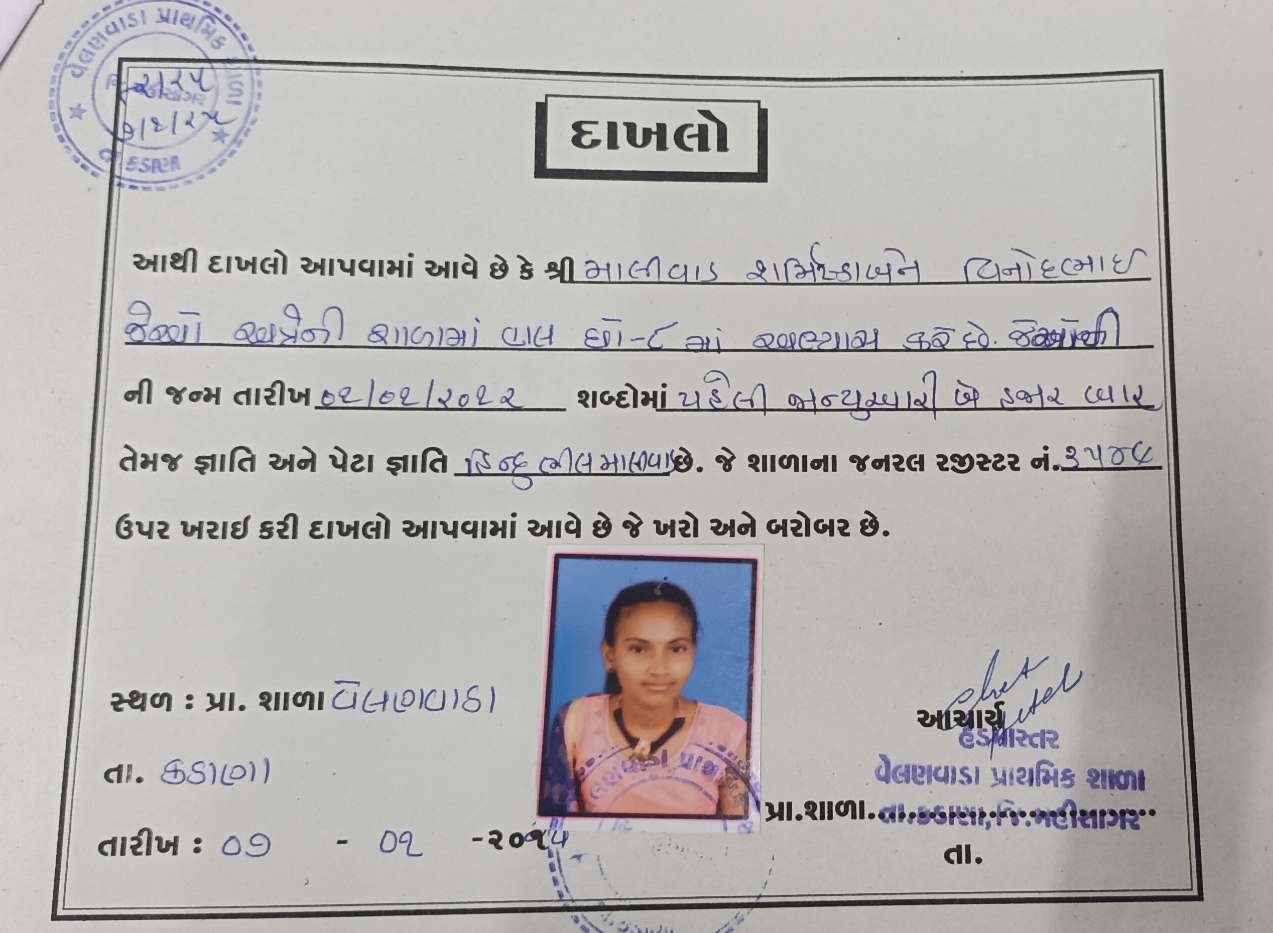 વેલણવાડા પ્રાથમિક શાળા
તા. કડાણા
દાખલો
આથી દાખલો આપવામાં આવે છે કે શ્રી માલીવાડ શર્મિષ્ઠાબેન વિનોદભાઈ
જેઓ અત્રેની શાળામાં હાલ ધો-૮ માં અભ્યાસ કરે છે. જેઓની
ની જન્મ તારીખ ૦૧/૦૧/૨૦૧૨ શબ્દોમાં પહેલી જાન્યુઆરી બે હજાર બાર
તેમજ જ્ઞાતિ અને પેટા જ્ઞાતિ હિન્દુ ભીલ માલીવાડ છે. જે શાળાના જનરલ રજીસ્ટર નં.
ઉપર ખરાઇ કરી દાખલો આપવામાં આવે છે જે ખરો અને બરોબર છે.
સ્થળ : પ્રા. શાળા વેલણવાડા
તા. કડાણા
તારીખ : ૦૭ - ૦૧ -૨૦૨૫
આચાર્ય
હેડમાસ્તર
વેલણવાડા પ્રાથમિક શાળા
પ્રા.શાળા. તા.કડાણા, જિ.મહીસાગર
તા.